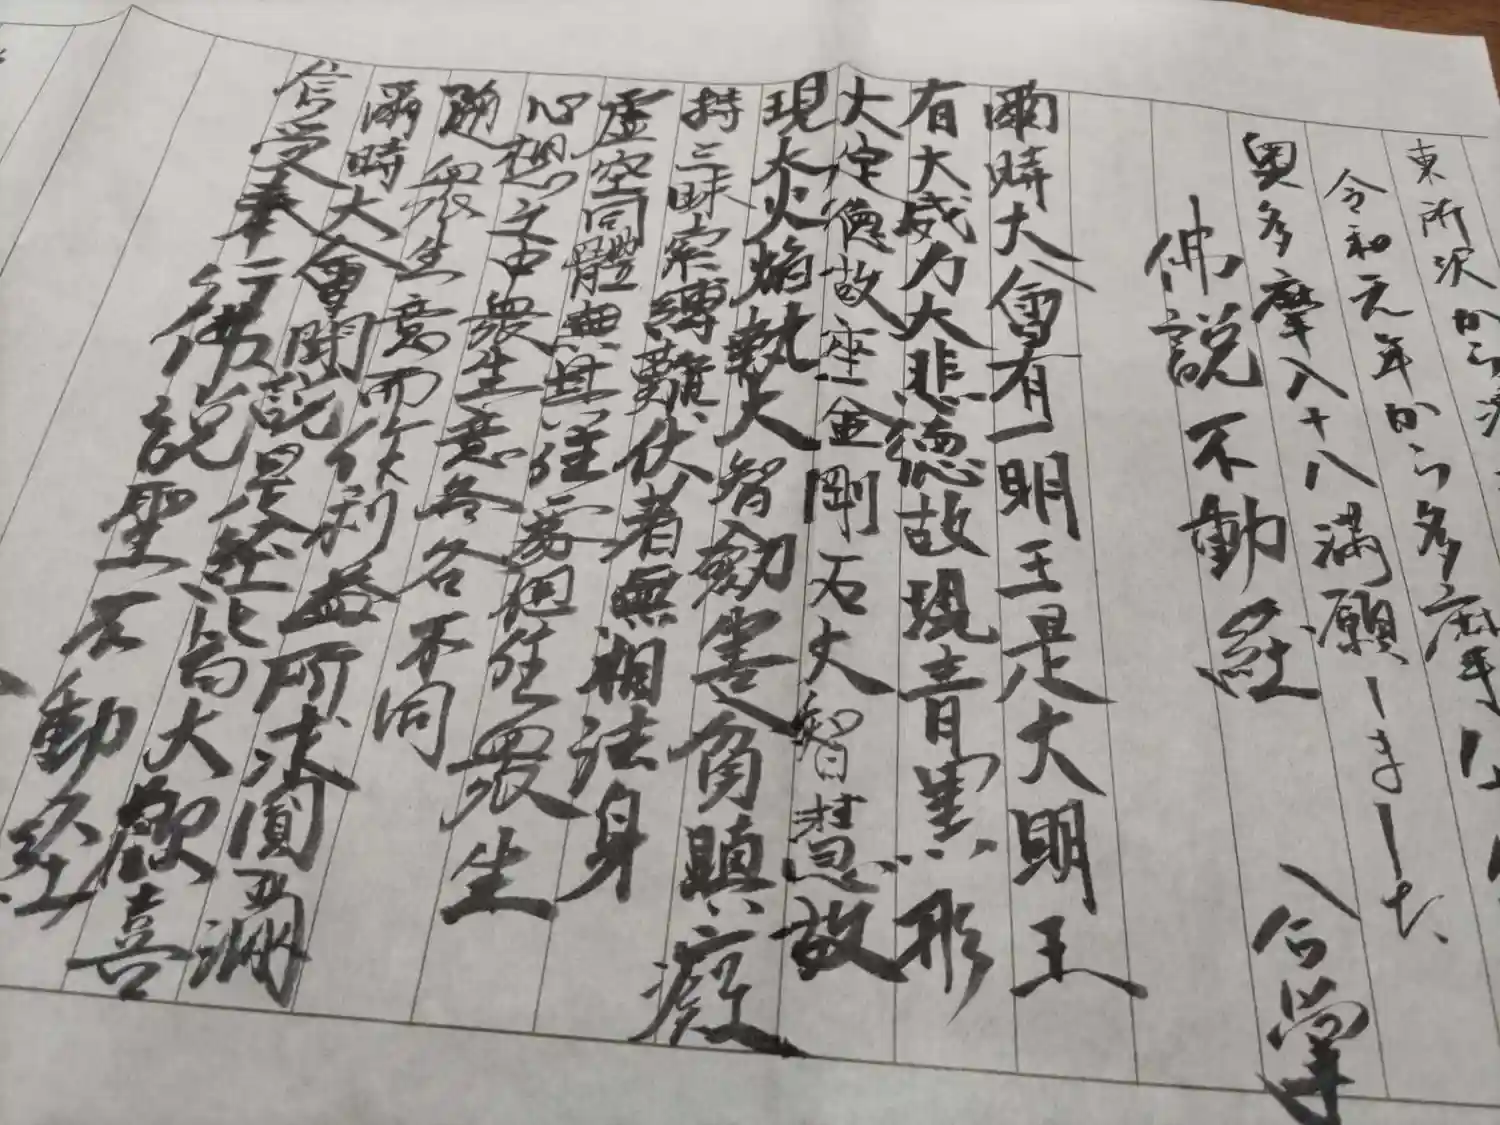 東所沢から
令和元年から多摩
奥多摩八十八満願しました
合掌
佛説不動経
爾時大會有一明王是大明王
有大威力大悲徳故現青黒形
大定徳故座金剛石大智慧故
現大火焔執大智劔害貪瞋癡
持三昧索縛難伏者無相法身
虚空同體無其住處但住衆生
心想之中衆生意各各不同
随衆生意而作利益所求圓満
爾時大會聞説是経皆大歓喜
信受奉行
佛説聖不動経